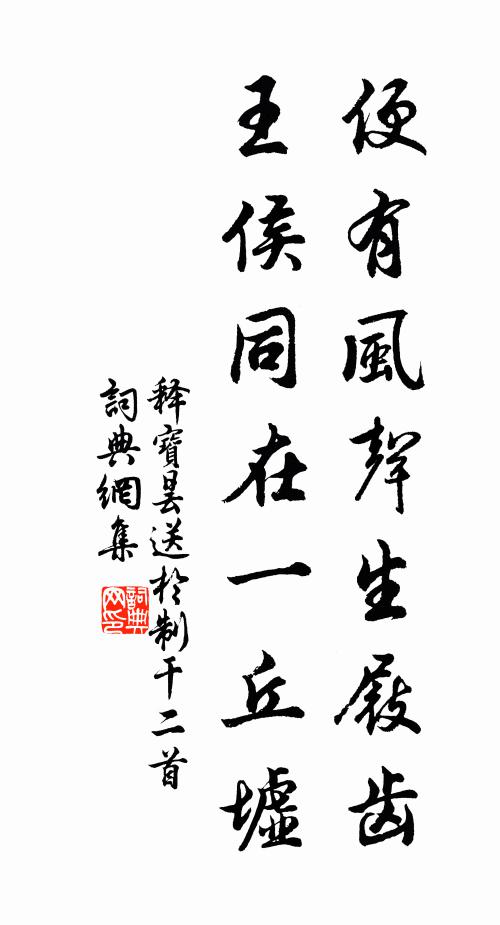 便有風聲生屐齒
王侯同在一丘墟
释寶曇送於制干二首
詞典網集
詞典网印